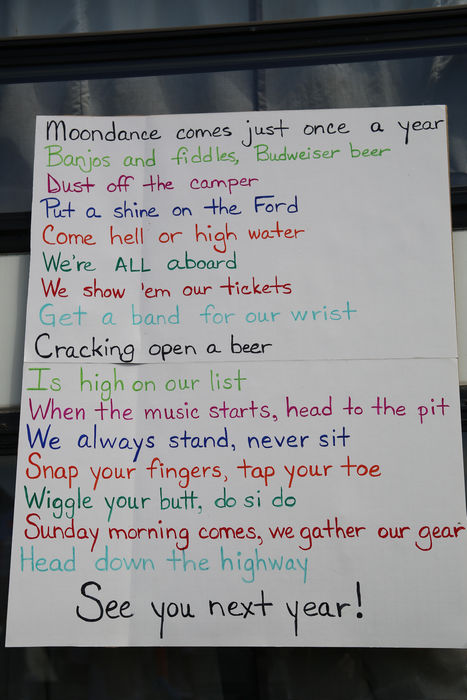 Moondance comes just once a year
Banjos and fiddles, Budweiser beer
Dust off the camper
Put a shine on the Ford
Come hell or high water
We're ALL aboard
We show 'em our tickets
Get a band for our wrist
Cracking open a beer
Is high on our list
When the music starts, head to the pit
We always stand, never sit
Snap your fingers, tap your toe
Wiggle your butt, do si do
Sunday morning comes, we gather our gear
Head down the highway
See you next year!